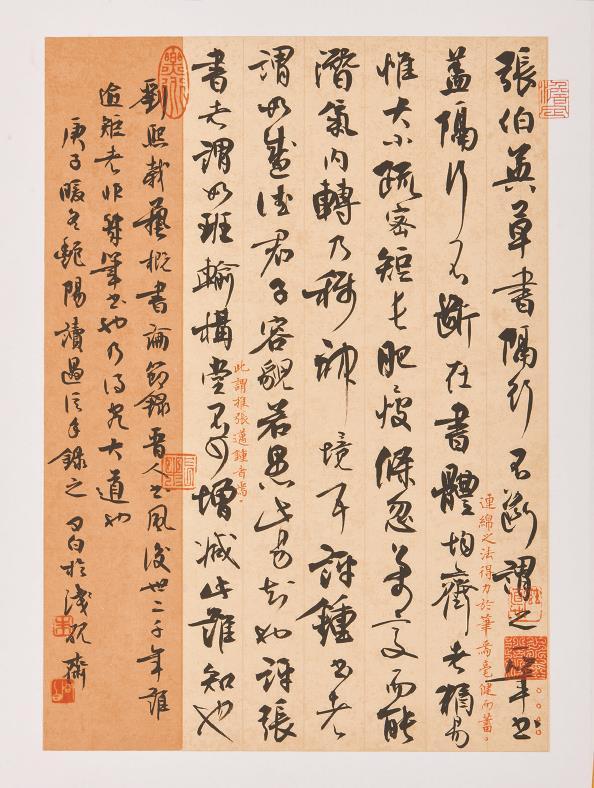 張伯英草書隔行不斷謂之一筆書
蓋隔行不斷在書體均齊者猶易
連綿之法得力於筆焉毫健而蓄。
惟大小疏密短長肥瘦倏忽萬變而能
潛氣內轉乃稱神境耳評鍾書者
謂如盛德君子容貌若愚此易知也評張
此謂推張邁鍾者焉。
書者謂如班輸構堂不可增減此難知也
劉熙載藝概書論節錄晉人書風後世二千年誰
逾矩者非筆書也乃得大道也
庚子暖冬陽讀過信手錄之白於淺硯齋